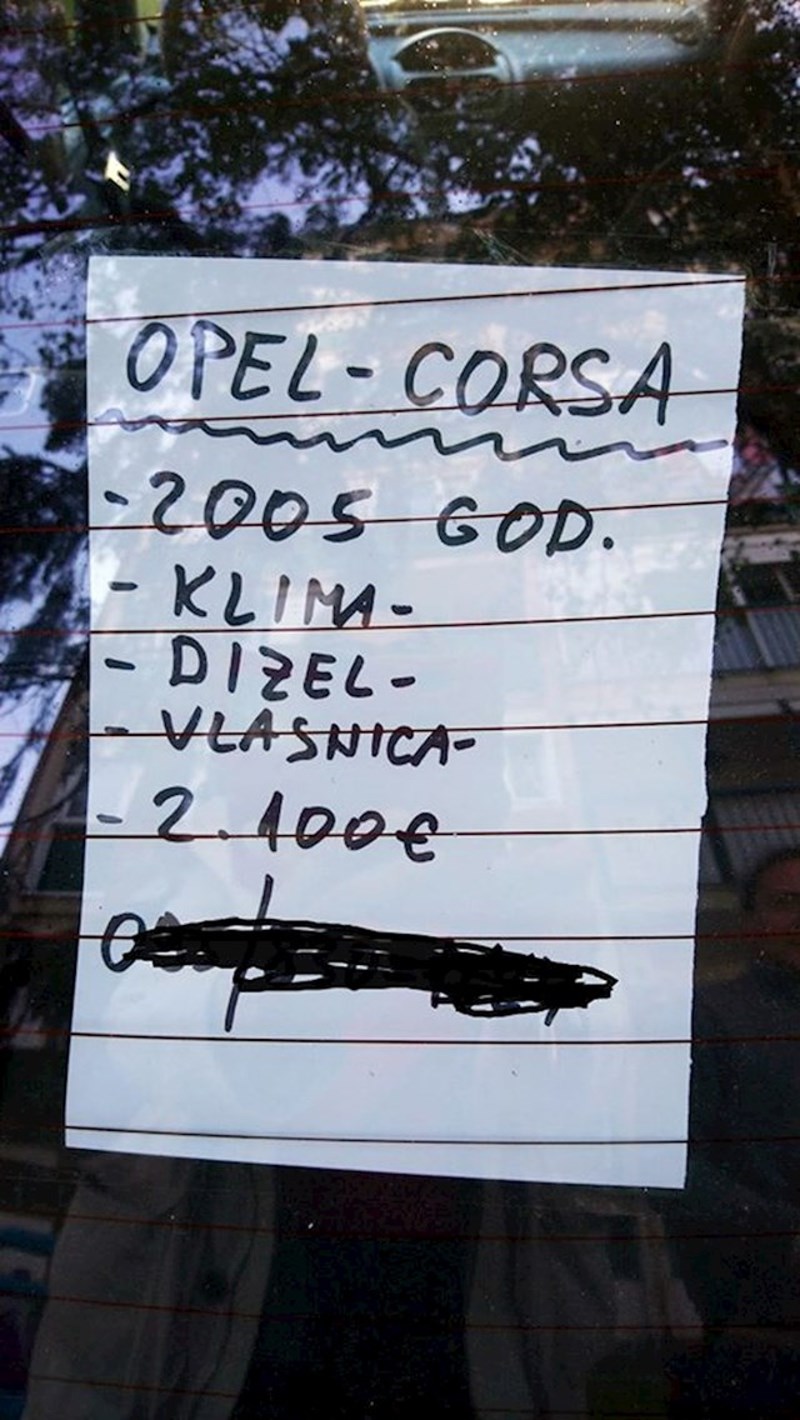 OPEL - CORSA
- 2005 GOD.
- KLIMA -
- DIZEL -
- VLASNICA -
- 2.100€